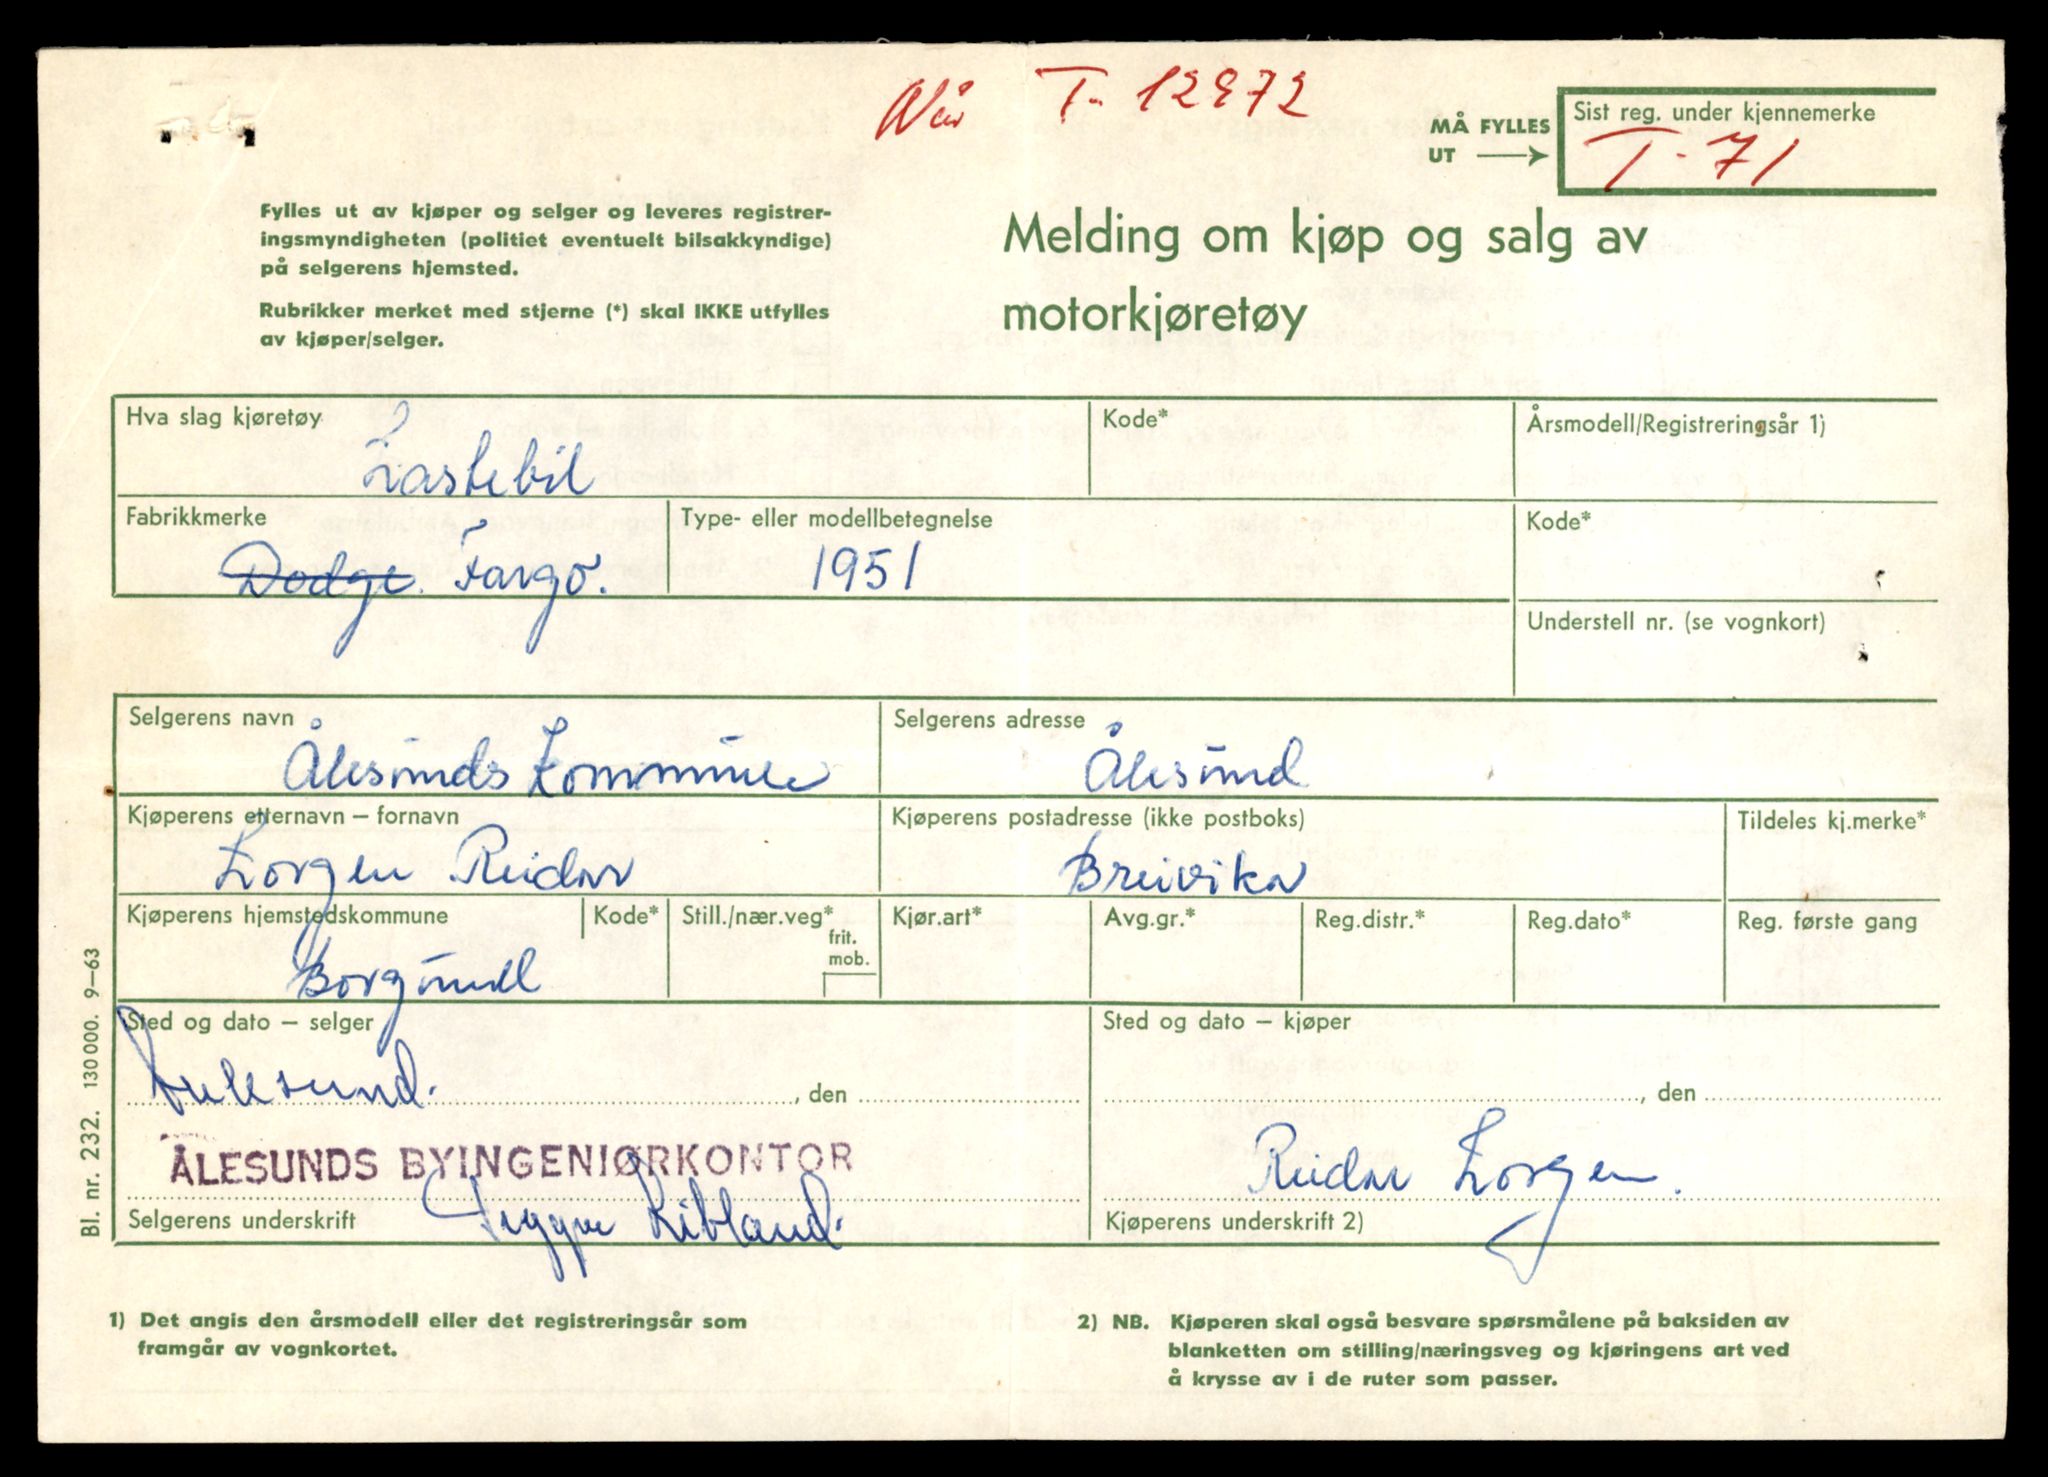 Når T- 12872
MÅ FYLLES UT
Sist reg. under kjennemerke
T-71
Fylles ut av kjøper og selger og leveres registrer-
ingsmyndigheten (politiet eventuelt bilsakkyndige)
på selgerens hjemsted.
Rubrikker merket med stjerne (*) skal IKKE utfylles
av kjøper/selger.
Melding om kjøp og salg av
motorkjøretøy
Hva slag kjøretøy
Lastebil
Kode*
Årsmodell/Registreringsår 1)
Fabrikkmerke
Dodge. Fargo.
Type- eller modellbetegnelse
1951
Kode*
Understell nr. (se vognkort)
Selgerens navn
Ålesunds Kommune
Selgerens adresse
Ålesund
Kjøperens etternavn – fornavn
Lorgen Reidar
Kjøperens postadresse (ikke postboks)
Breivika
Tildeles kj.merke*
Kjøperens hjemstedskommune
Borgund
Kode*
Still./nær.veg*
frit.
mob.
Kjør.art*
Avg.gr.*
Reg.distr.*
Reg.dato*
Reg. første gang
Sted og dato – selger
Aalesund.
, den
Sted og dato – kjøper
, den
ÅLESUNDS BYINGENIØRKONTOR
Selgerens underskrift
Reidar Lorgen.
Kjøperens underskrift 2)
Bl. nr. 232. 130 000. 9–63
1) Det angis den årsmodell eller det registreringsår som
framgår av vognkortet.
2) NB. Kjøperen skal også besvare spørsmålene på baksiden av
blanketten om stilling/næringsveg og kjøringens art ved
å krysse av i de ruter som passer.